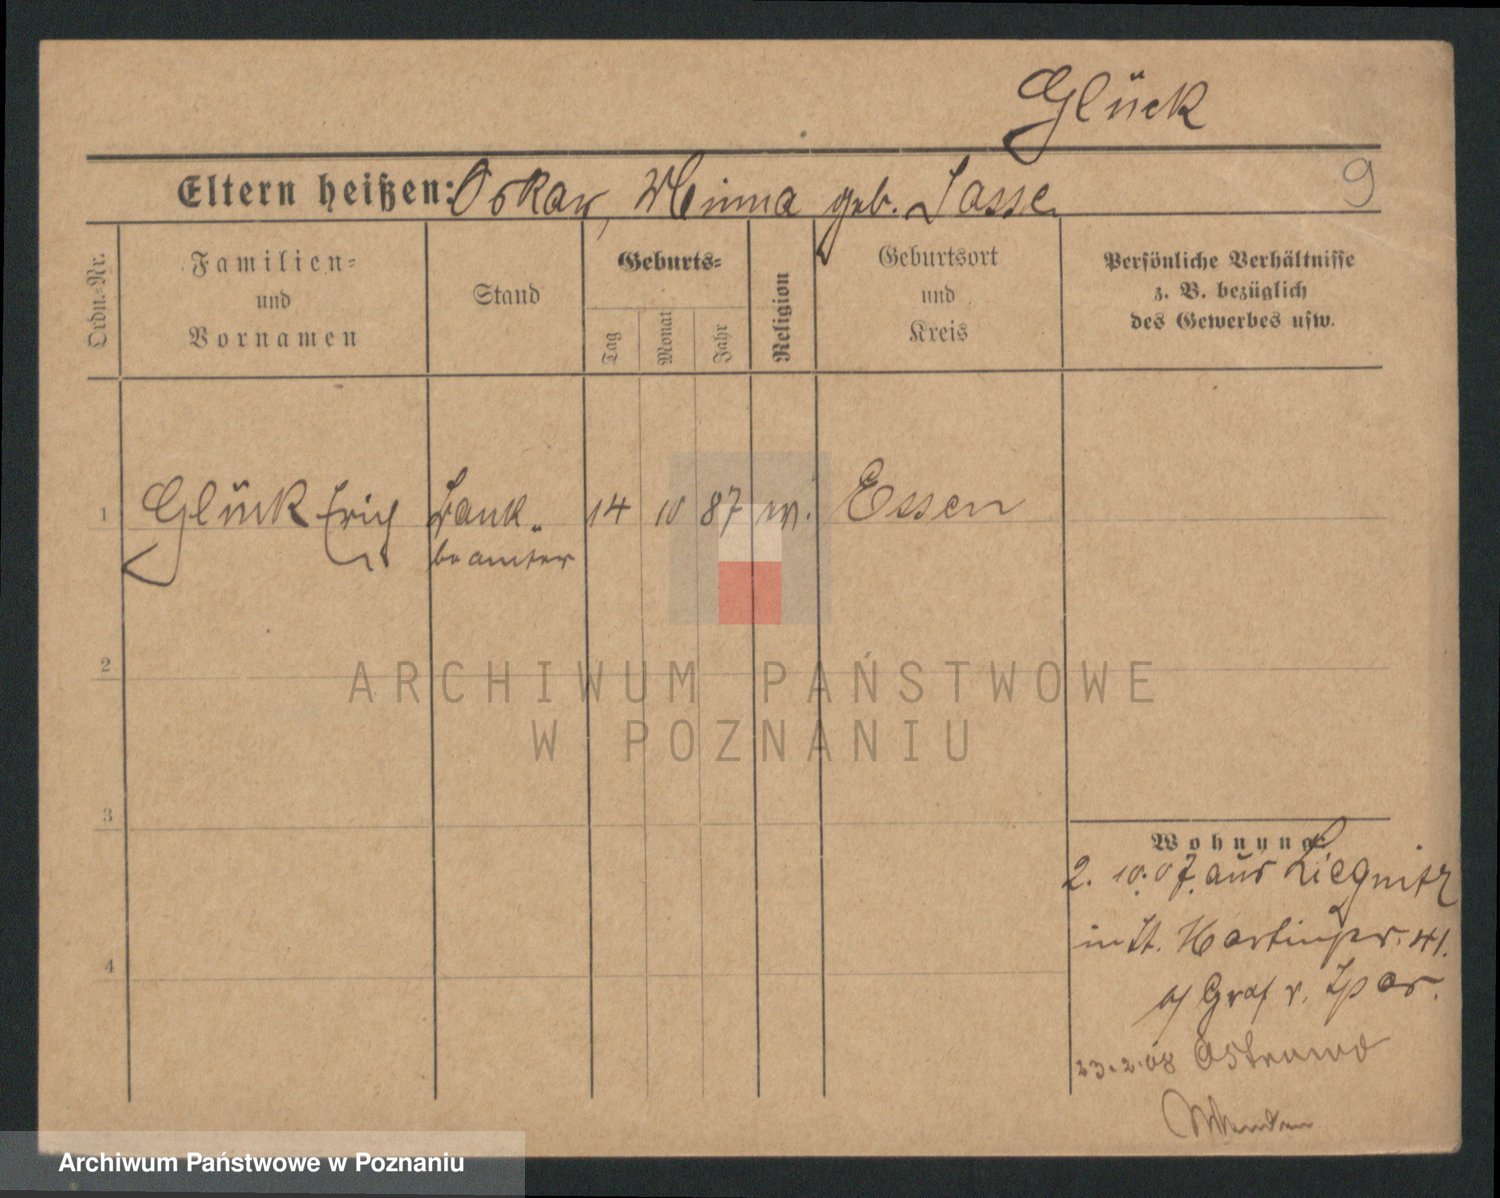 Glück
Eltern heißen: Oskar, Minna geb. Sasse
9
Ordn.-Nr.
Familien=
und
Vornamen
Stand
Geburts=
Tag
Monat
Jahr
Religion
Geburtsort
und
Kreis
Persönliche Verhältnisse
z. B. bezüglich
des Gewerbes usw.
1 Glück Erich Bank- 14 10 87 Essen
beamter
2
ARCHIWUM PAŃSTWOWE
W POZNANIU
3
Wohnung:
2. 10. 07. aus Liegnitz
in St. Martinstr. 41.
b/ Graf v.
4
23.2.08 Ostrowo
Wenden
Archiwum Państwowe w Poznaniu